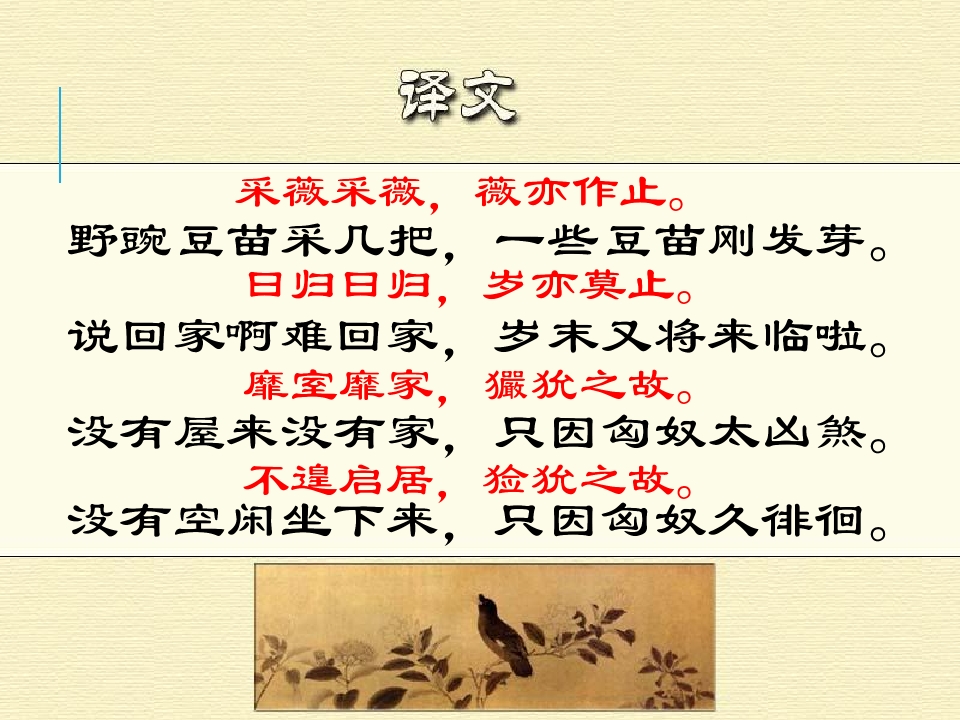 译文
采薇采薇，薇亦作止。
野豌豆苗采几把，一些豆苗刚发芽。
曰归曰归，岁亦莫止。
说回家啊难回家，岁末又将来临啦。
靡室靡家，玁狁之故。
没有屋来没有家，只因匈奴太凶煞。
不遑启居，猃狁之故。
没有空闲坐下来，只因匈奴久徘徊。